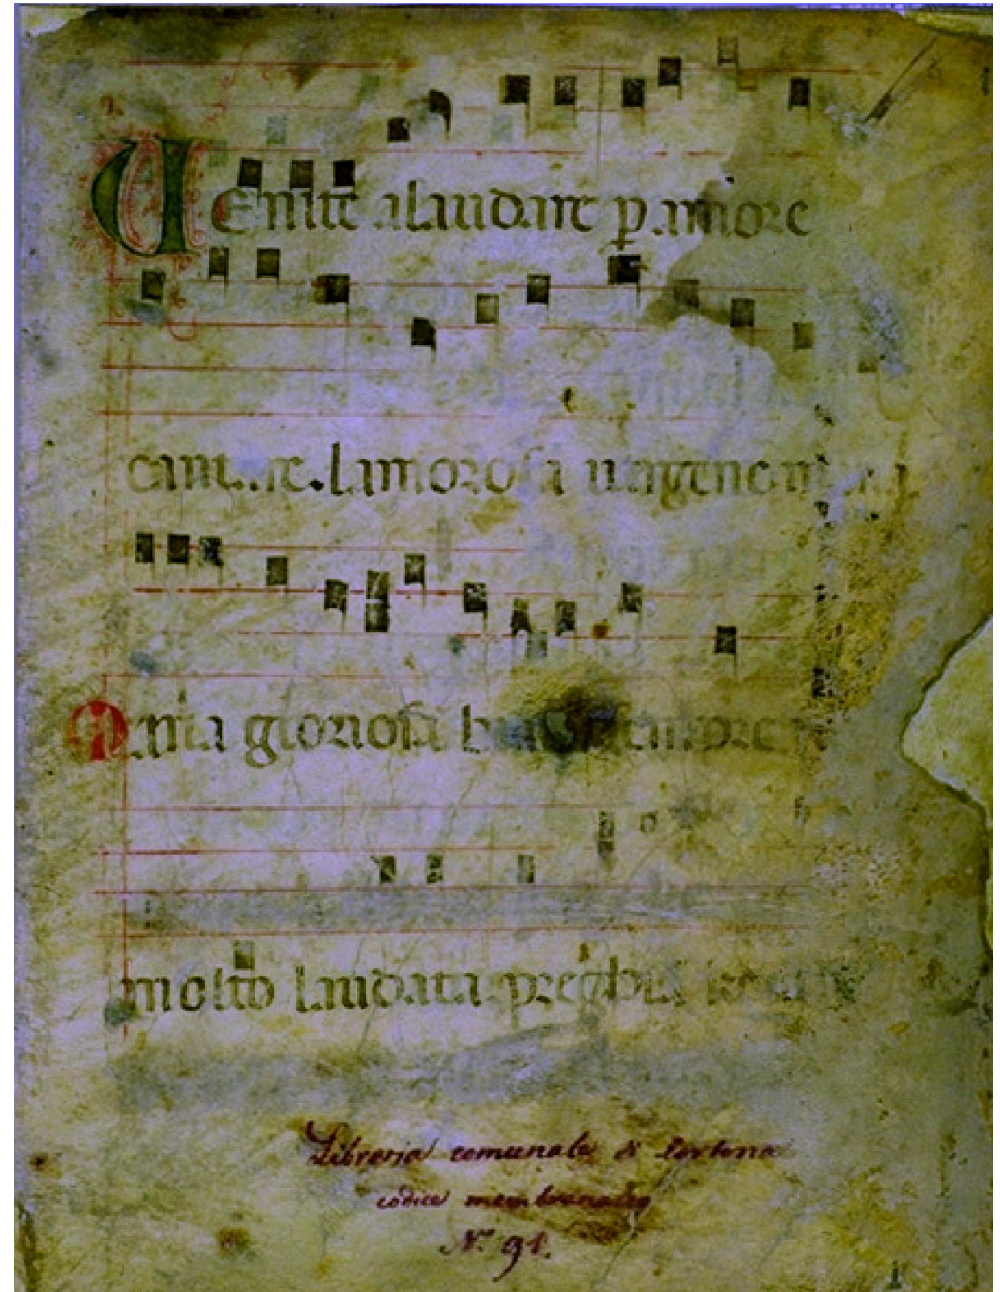 Uenite alaudare p amore
cantate lamorosa uergene maria
Maria gloriosa biata sempre
molto laudata preghia
Libreria comunale di Cortona
codice membranaceo
N.° 91.
1